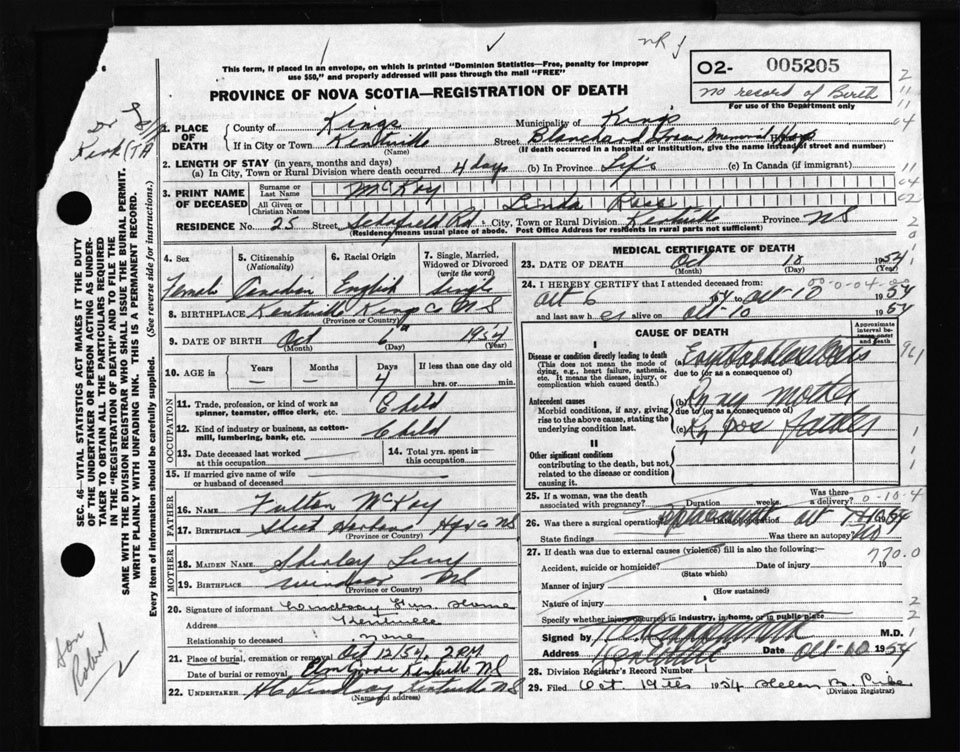 nR
This form, if placed in an envelope, on which is printed "Dominion Statistics—Free, penalty for improper
use $50," and properly addressed will pass through the mail "FREE"
02- 005205
no record of Birth
For use of the Department only
PROVINCE OF NOVA SCOTIA—REGISTRATION OF DEATH
Dr
Kirk
1. PLACE OF DEATH
County of Kings
Municipality of Kings
If in City or Town Kentville
(Name)
Street Blanchard Fraser Memorial Hosp
(If death occurred in a hospital or institution, give the name instead of street and number)
2. LENGTH OF STAY (in years, months and days)
(a) In City, Town or Rural Division where death occurred 4 days (b) In Province Life (c) In Canada (if immigrant)
3. PRINT NAME OF DECEASED
Surname or Last Name McKay
All Given or Christian Names Linda Rose
RESIDENCE No. 25 Street Schofield Rd City, Town or Rural Division Kentville Province NS
(Residence means usual place of abode. Post Office Address for residents in rural parts not sufficient)
4. Sex
Female
5. Citizenship (Nationality)
Canadian
6. Racial Origin
English
7. Single, Married, Widowed or Divorced (write the word)
Single
8. BIRTHPLACE Kentville Kings Co NS
(Province or Country)
9. DATE OF BIRTH Oct 6 1954
(Month) (Day) (Year)
10. AGE in
Years Months Days If less than one day old
– – 4 hrs. or min.
OCCUPATION
11. Trade, profession or kind of work as spinner, teamster, office clerk, etc. Child
12. Kind of industry or business, as cotton-mill, lumbering, bank, etc. Child
13. Date deceased last worked at this occupation
14. Total yrs. spent in this occupation
15. If married give name of wife or husband of deceased
FATHER
16. NAME Fulton McKay
17. BIRTHPLACE Sheet Harbour Hfx Co NS
(Province or Country)
MOTHER
18. MAIDEN NAME Shirley Levy
19. BIRTHPLACE Windsor NS
(Province or Country)
20. Signature of informant Lindsay Fun. Home
Address Kentville
Relationship to deceased none
21. Place of burial, cremation or removal Oct 12/54, 2 PM
Date of burial or removal Elm Grove Kentville NS
22. UNDERTAKER H C Lindsay Kentville NS
(Name and address)
MEDICAL CERTIFICATE OF DEATH
23. DATE OF DEATH Oct 10 1954
(Month) (Day) (Year)
24. I HEREBY CERTIFY that I attended deceased from:
Oct 6 54 to Oct-10 1954
and last saw her alive on Oct-10 1954
CAUSE OF DEATH
Approximate interval between onset and death
I
Disease or condition directly leading to death
(This does not mean the mode of dying, e.g., heart failure, asthenia, etc. It means the disease, injury, or complication which caused death.)
(a) Erythroblastosis
due to (or as a consequence of)
Antecedent causes
Morbid conditions, if any, giving rise to the above cause, stating the underlying condition last.
(b) Rh neg mother
due to (or as a consequence of)
(c) Rh pos father
II
Other significant conditions
contributing to the death, but not related to the disease or condition causing it.
25. If a woman, was the death associated with pregnancy? Duration weeks. Was there a delivery?
0-10-4
26. Was there a surgical operation? Date of operation
State findings Was there an autopsy? No
27. If death was due to external causes (violence) fill in also the following:—
770.0
Accident, suicide or homicide? Date of injury 19
(State which)
Manner of injury
(How sustained)
Nature of injury
Specify if injury occurred in industry, in home, or in public place
Signed by M.D.
Address Kentville Date Oct-10 1954
28. Division Registrar's Record Number
29. Filed Oct 19th 1954 Helen B.
(Division Registrar)
SEC. 46—VITAL STATISTICS ACT MAKES IT THE DUTY
OF THE UNDERTAKER OR PERSON ACTING AS UNDER-
TAKER TO OBTAIN ALL THE PARTICULARS REQUIRED
IN THE "REGISTRATION OF DEATH" AND TO FILE THE
SAME WITH THE DIVISION REGISTRAR WHO SHALL ISSUE THE BURIAL PERMIT.
WRITE PLAINLY WITH UNFADING INK. THIS IS A PERMANENT RECORD.
Every item of information should be carefully supplied. (See reverse side for instructions).
Don
Robert